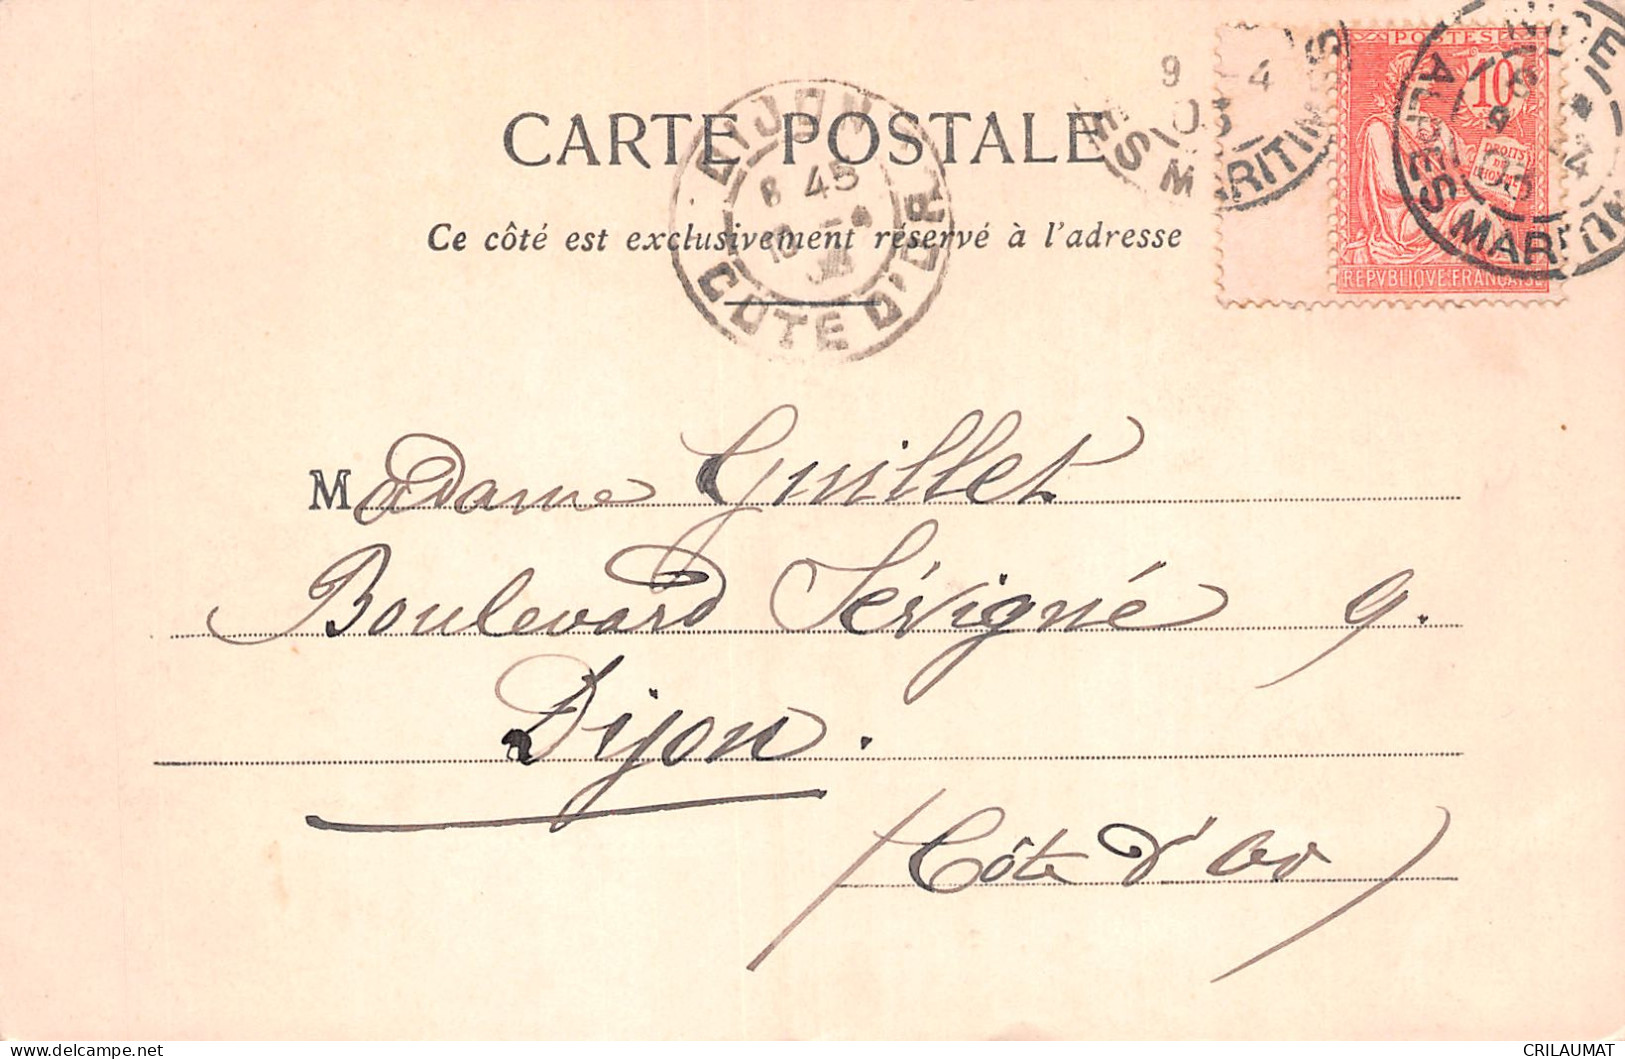 CARTE POSTALE
Ce côté est exclusivement réservé à l'adresse
DIJON
8 45
10
CÔTE D'OR
9 4
03
ES MARITIMES
POSTES
10
DROITS
DE
L'HOMME
REPVBLIQVE FRANÇAISE
NICE
9 4
03
ALPES MARITIM
Madame Guillet
Boulevard Sévigné 9.
Dijon.
(Côte d'Or)
CRILAUMAT